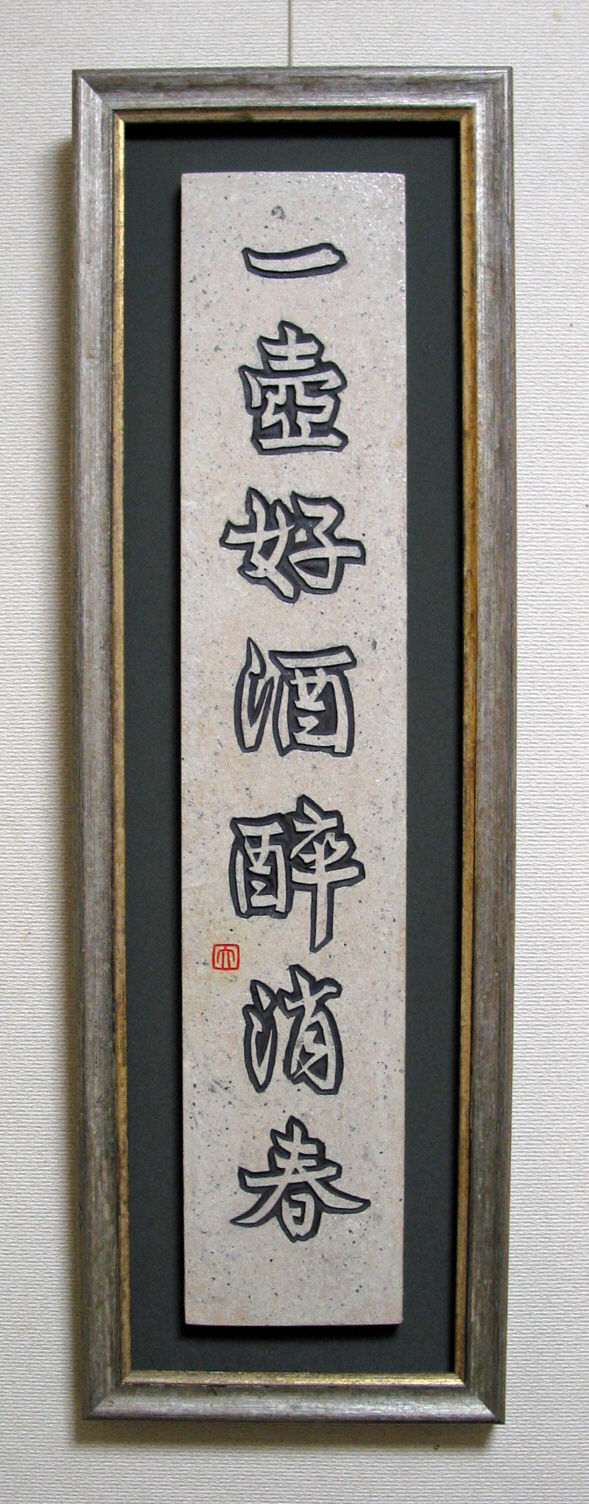 一壺好酒醉消春